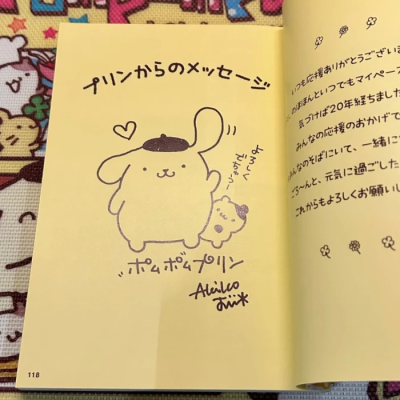 プリンからのメッセージ
よろしく
ポムポムプリン
Akiko
118
いつも応援ありがとうございま
いつでもマイペース
気づけば20年経ちました
みんなの応援のおかげで
みんなのそばにいて、一緒に
ごろ〜んと、元気に過ごした
これからもよろしくお願いし